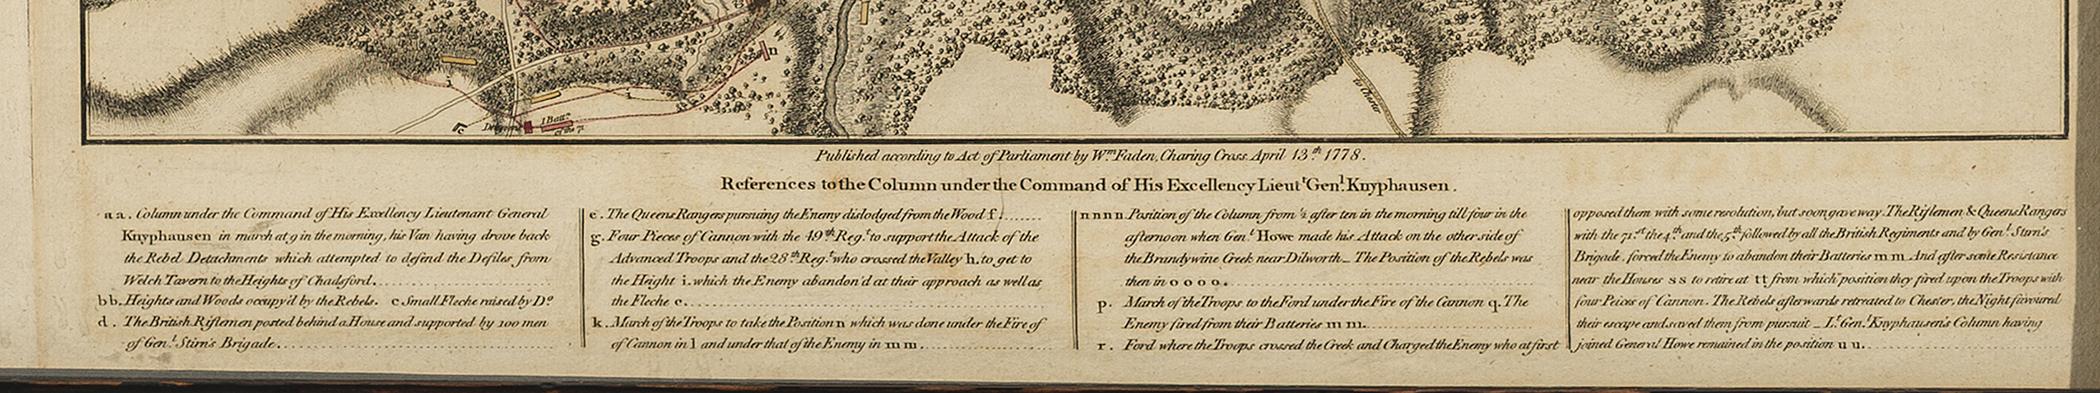 h
i
n
c
Dragoons
1 Batt.n
of the 71
to Chester
Published according to Act of Parliament by W.m Faden, Charing Cross April 13.th 1778.
References to the Column under the Command of His Excellency Lieut.t Gen.l Knyphausen.
aa. Column under the Command of His Excellency Lieutenant General
Knyphausen in march at 9 in the morning, his Van having drove back
the Rebel Detachments which attempted to defend the Defiles from
Welch Tavern to the Heights of Chadsford.
bb. Heights and Woods occupy'd by the Rebels. c Small Fleche raised by D.o
d. The British Riflemen posted behind a House and supported by 100 men
of Gen.l Stirn's Brigade.
e. The Queens Rangers pursuing the Enemy dislodged from the Wood f.
g. Four Pieces of Cannon with the 49.th Reg.t to support the Attack of the
Advanced Troops and the 28.th Reg.t who crossed the Valley h. to get to
the Height i. which the Enemy abandon'd at their approach as well as
the Fleche c.
k. March of the Troops to take the Position n which was done under the Fire of
of Cannon in l and under that of the Enemy in m m.
nnnn Position of the Column from ½ after ten in the morning till four in the
afternoon when Gen.l Howe made his Attack on the other side of
the Brandywine Creek near Dilworth _ The Position of the Rebels was
then in o o o o.
p. March of the Troops to the Ford under the Fire of the Cannon q. The
Enemy fired from their Batteries m m.
r. Ford where the Troops crossed the Creek and Charged the Enemy who at first
opposed them with some resolution, but soon gave way. The Riflemen & Queens Rangers
with the 71.st the 4.th and the 5.th followed by all the British Regiments and by Gen.l Stirn's
Brigade, forced the Enemy to abandon their Batteries m m. And after some Resistance
near the Houses ss to retire at tt from which position they fired upon the Troops with
four Peices of Cannon. The Rebels afterwards retreated to Chester, the Night favoured
their escape and saved them from pursuit _ L.t Gen.l Knyphausen's Column having
joined General Howe remained in the position u u.